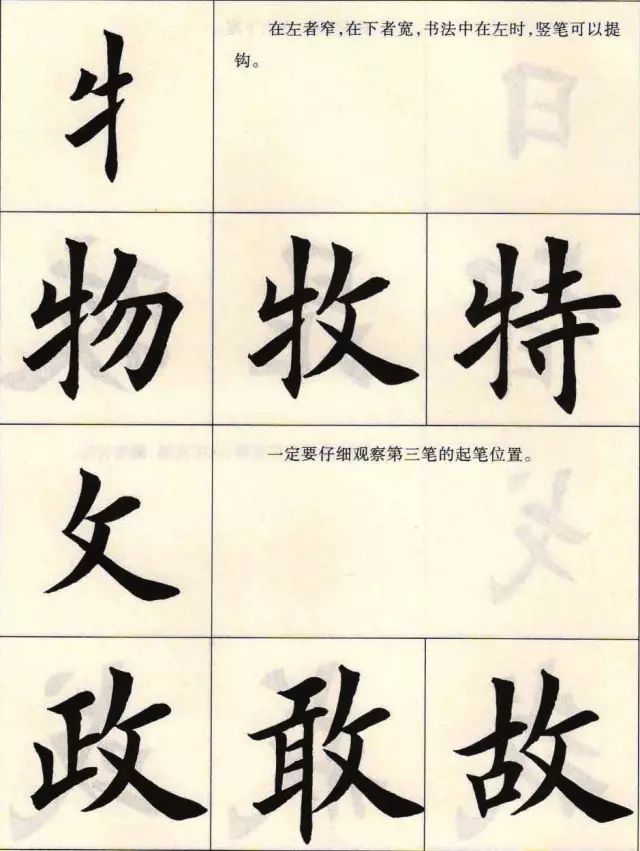 牜
在左者窄，在下者宽，书法中在左时，竖笔可以提
钩。
物 牧 特
攵
一定要仔细观察第三笔的起笔位置。
政 敢 故